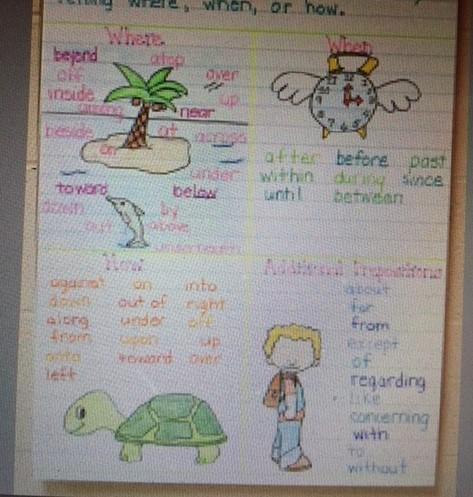 where, when, or how.
Where
beyond atop
off over
inside up
among near
beside at across
on
under
toward below
down by
out above
underneath
When
12
after before past
within during since
until between
How
against on into
down out of right
along under off
from upon up
onto toward over
left
Additional Prepositions
about
for
from
except
of
regarding
like
concerning
with
to
without